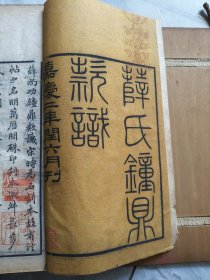 薛氏鐘鼎
款識
嘉慶二年閏六月刊
薛尚功鐘鼎款識宋時爲石刻本故有法
帖之名明萬厯間硃印刊本